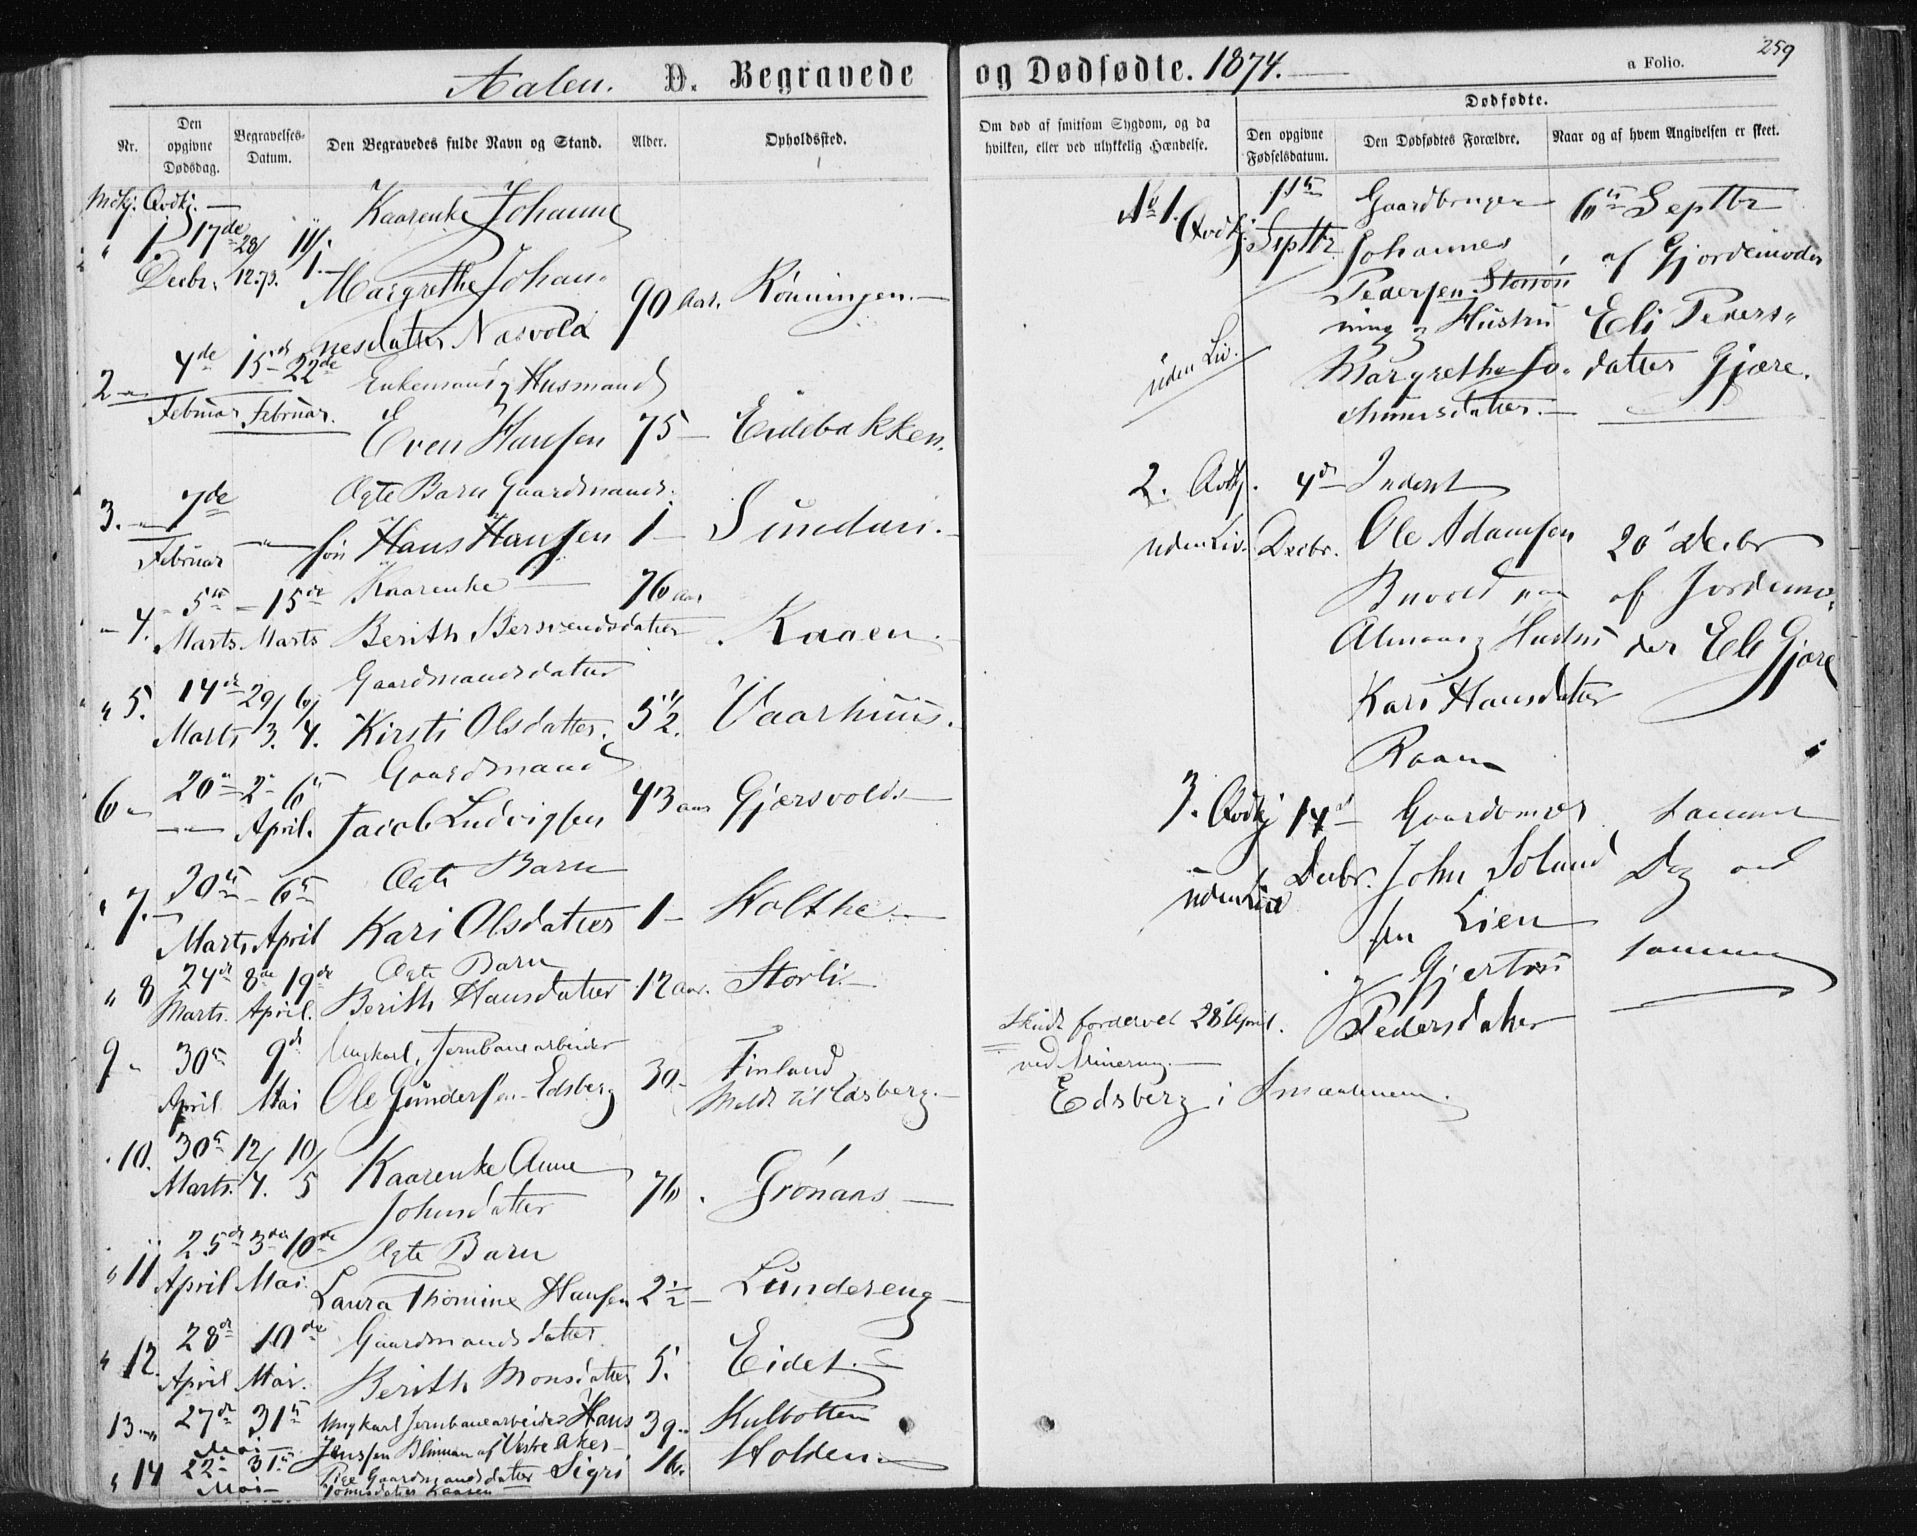 Aalen. D. Begravede
Nr.
Den opgivne Dødsdag.
Begravelses-Datum.
Den Begravedes fulde Navn og Stand.
Alder.
Opholdssted.
Mdkj. Qvdkj.
1. 17de 28/ 11/ Kaarenke Johanne
Decbr. 12.73. 1. Margrethe Johan-
90 Aar. Rønningen.
nesdatter Næsvold
2 4de 15d 22de Enkemand og Husmand
Februar Februar. Even Hansen 75 Eidebakken.
3. 7de Ægte Barn Gaardmands-
Februar søn Hans Hansen 1
4. 5te 15de Kaarenke 76 Aar
Marts. Marts Berith Bersvendsdatter Kaaen.
5. 14de 29/ 6/ Gaardmandsdatter
Marts 3. 4. Kirsti Olsdatter. 5 1/2. Vaarhuus.
6 20 2 6te Gaardmand
April. Jacob Ludvigsen 43 aar Gjersvold
7. 30te 6te Ægte Barn
Marts April Kari Olsdatter 1 Holthe
8 24de 8de 19de Ægte Barn
Marts. April. Berith Hansdatter 12 Aar. Storli
9 30te 9de Ungkarl, Jernbanearbeider
April Mai Ole Gundersen Edsberg 30 Finland
Meldt til Edsberg.
10. 30te 12/ 10/ Kaarenke Anne
Marts. 4. 5 Johnsdatter 76. Grønaas
11 25de 3die 10de Ægte Barn
April Mai. Laura Thomine Hansen 2 1/2 Lundereng
12. 28de 10de Gaardmandsdatter
April Mai. Berith Monsdatter 5. Eidet.
13 27de 31te Ungkarl Jernbanearbeider Hans 39 Kulbotten
Mai Jenssen af Vestre Aker
14 22 31te Pige Gaardmandsdatter Sigri 16. Holden
Mai Kaasen
og Dødfødte. 1874. a Folio. 259
Om død af smitsom Sygdom, og da hvilken, eller ved ulykkelig Hændelse.
Dødfødte.
Den opgivne Fødselsdatum.
Den Dødfødtes Forældre.
Naar og af hvem Angivelsen er skeet.
No 1. Qvdkj. Septbr Gaardbruger 6te Septbr
Johannes af Gjordemoder
Pedersen
uden Liv. og Hustru Eli Peders-
Margrethe Jo- datter Gjære.
2. Qvdkj. 4de Inderst
uden Liv. Decbr. Ole Adamsen 20 Decbr
af Jordemo-
Hustru der Eli Gjære
Kari Hansdatter
3. Qvdkj 14de samme
uden Liv Decbr. John Dag ved
sen Lien samme
og Gjertru
Pedersdatter
Skudt fordervet 28 April.
ved Minering.
Edsberg i Smaalenene.